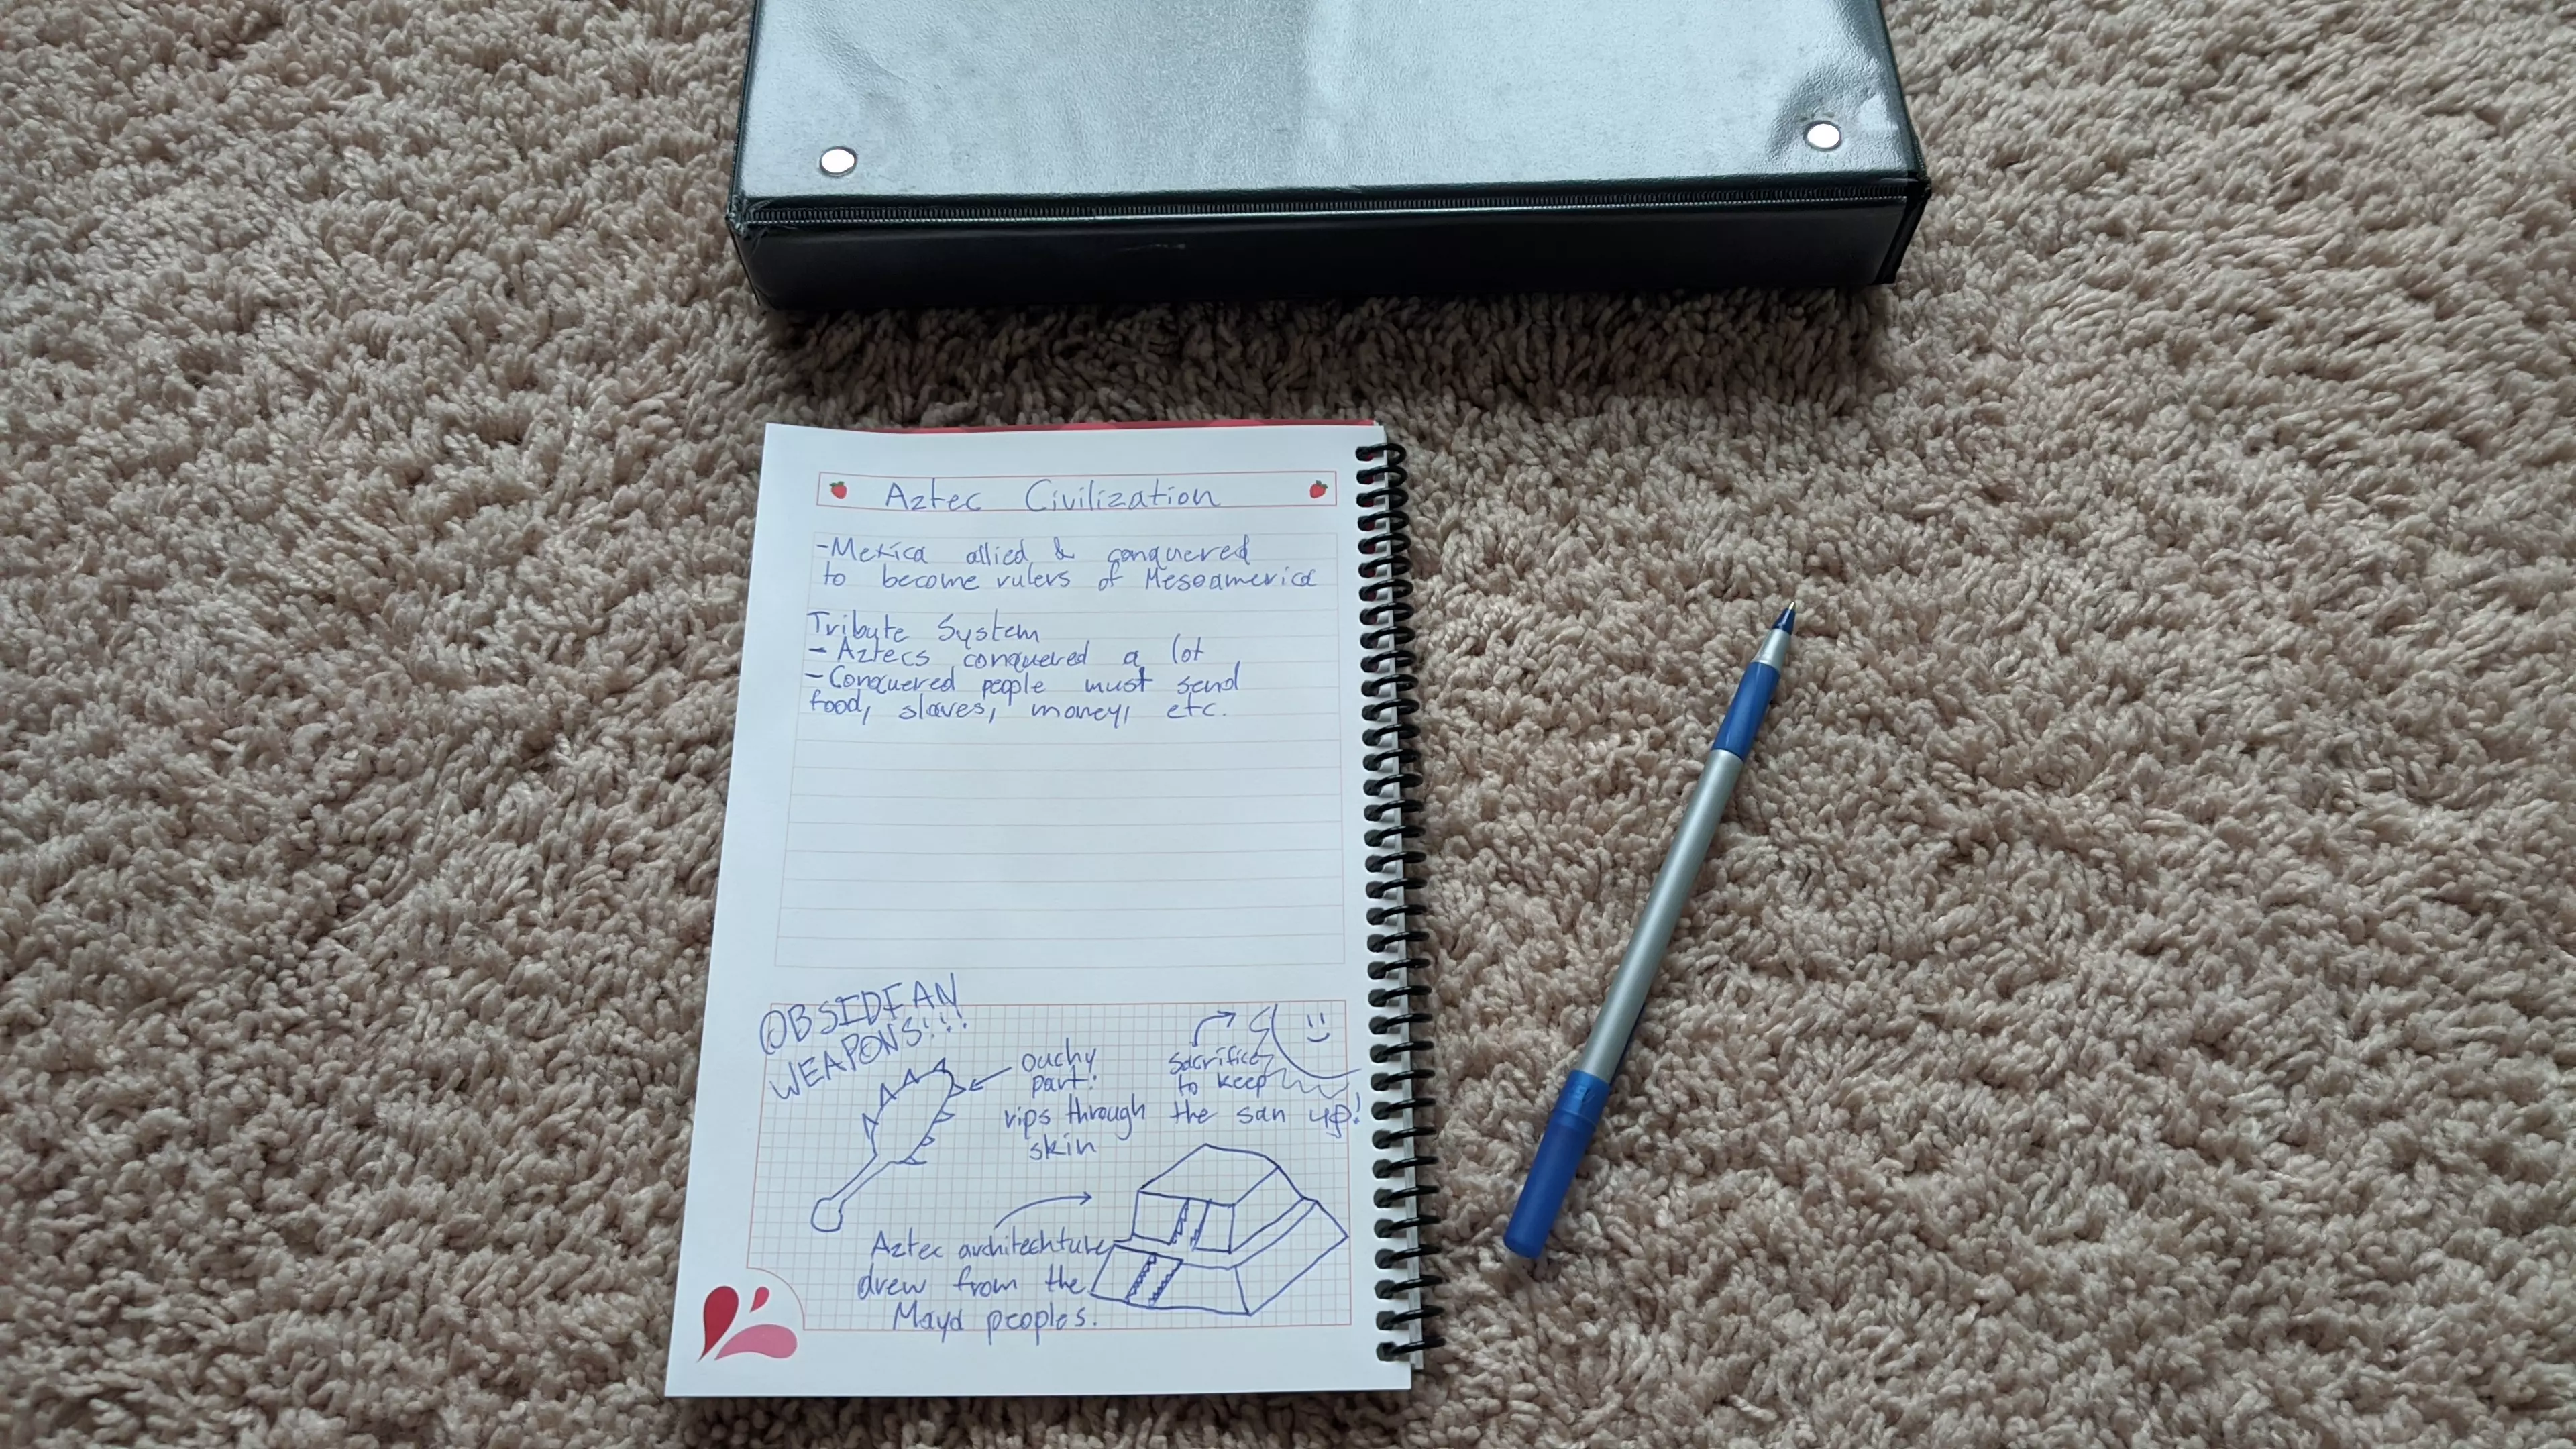 Aztec Civilization
-Mexica allied & conquered
to become rulers of Mesoamerica
Tribute System
- Aztecs conquered a lot
- Conquered people must send
food, slaves, money, etc.
OBSIDIAN
WEAPONS!!!
ouchy
part!
rips through
skin
sacrifices
to keep
the sun up!
Aztec architechture
drew from the
Maya peoples.